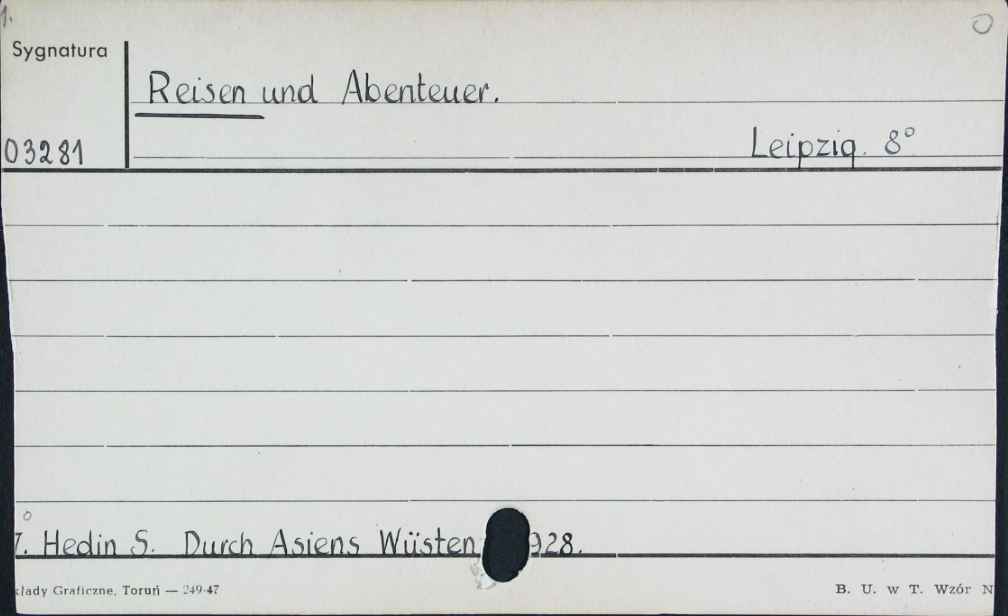 1.
Sygnatura
Reisen und Abenteuer.
03281
Leipzig. 8°
7. Hedin S. Durch Asiens Wüsten 928.
kłady Graficzne, Toruń — 249-47
B. U. w T. Wzór N